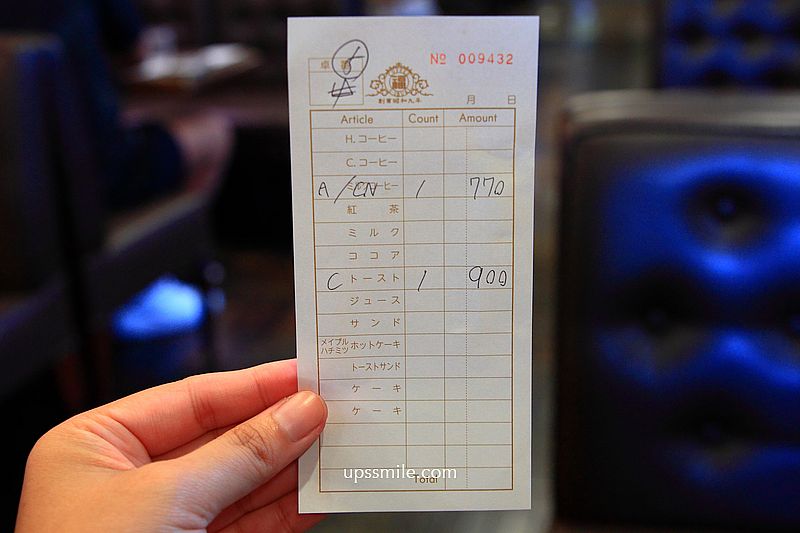 № 009432
卓番
6
福
創業昭和九年
月 日
Article Count Amount
H.コーヒー
C.コーヒー
A/CN 1 770
紅 茶
ミ ル ク
コ コ ア
C トースト 1 900
ジュース
サ ン ド
メイプル
ハチミツ ホットケーキ
トーストサンド
ケ ー キ
ケ ー キ
Total
upssmile.com